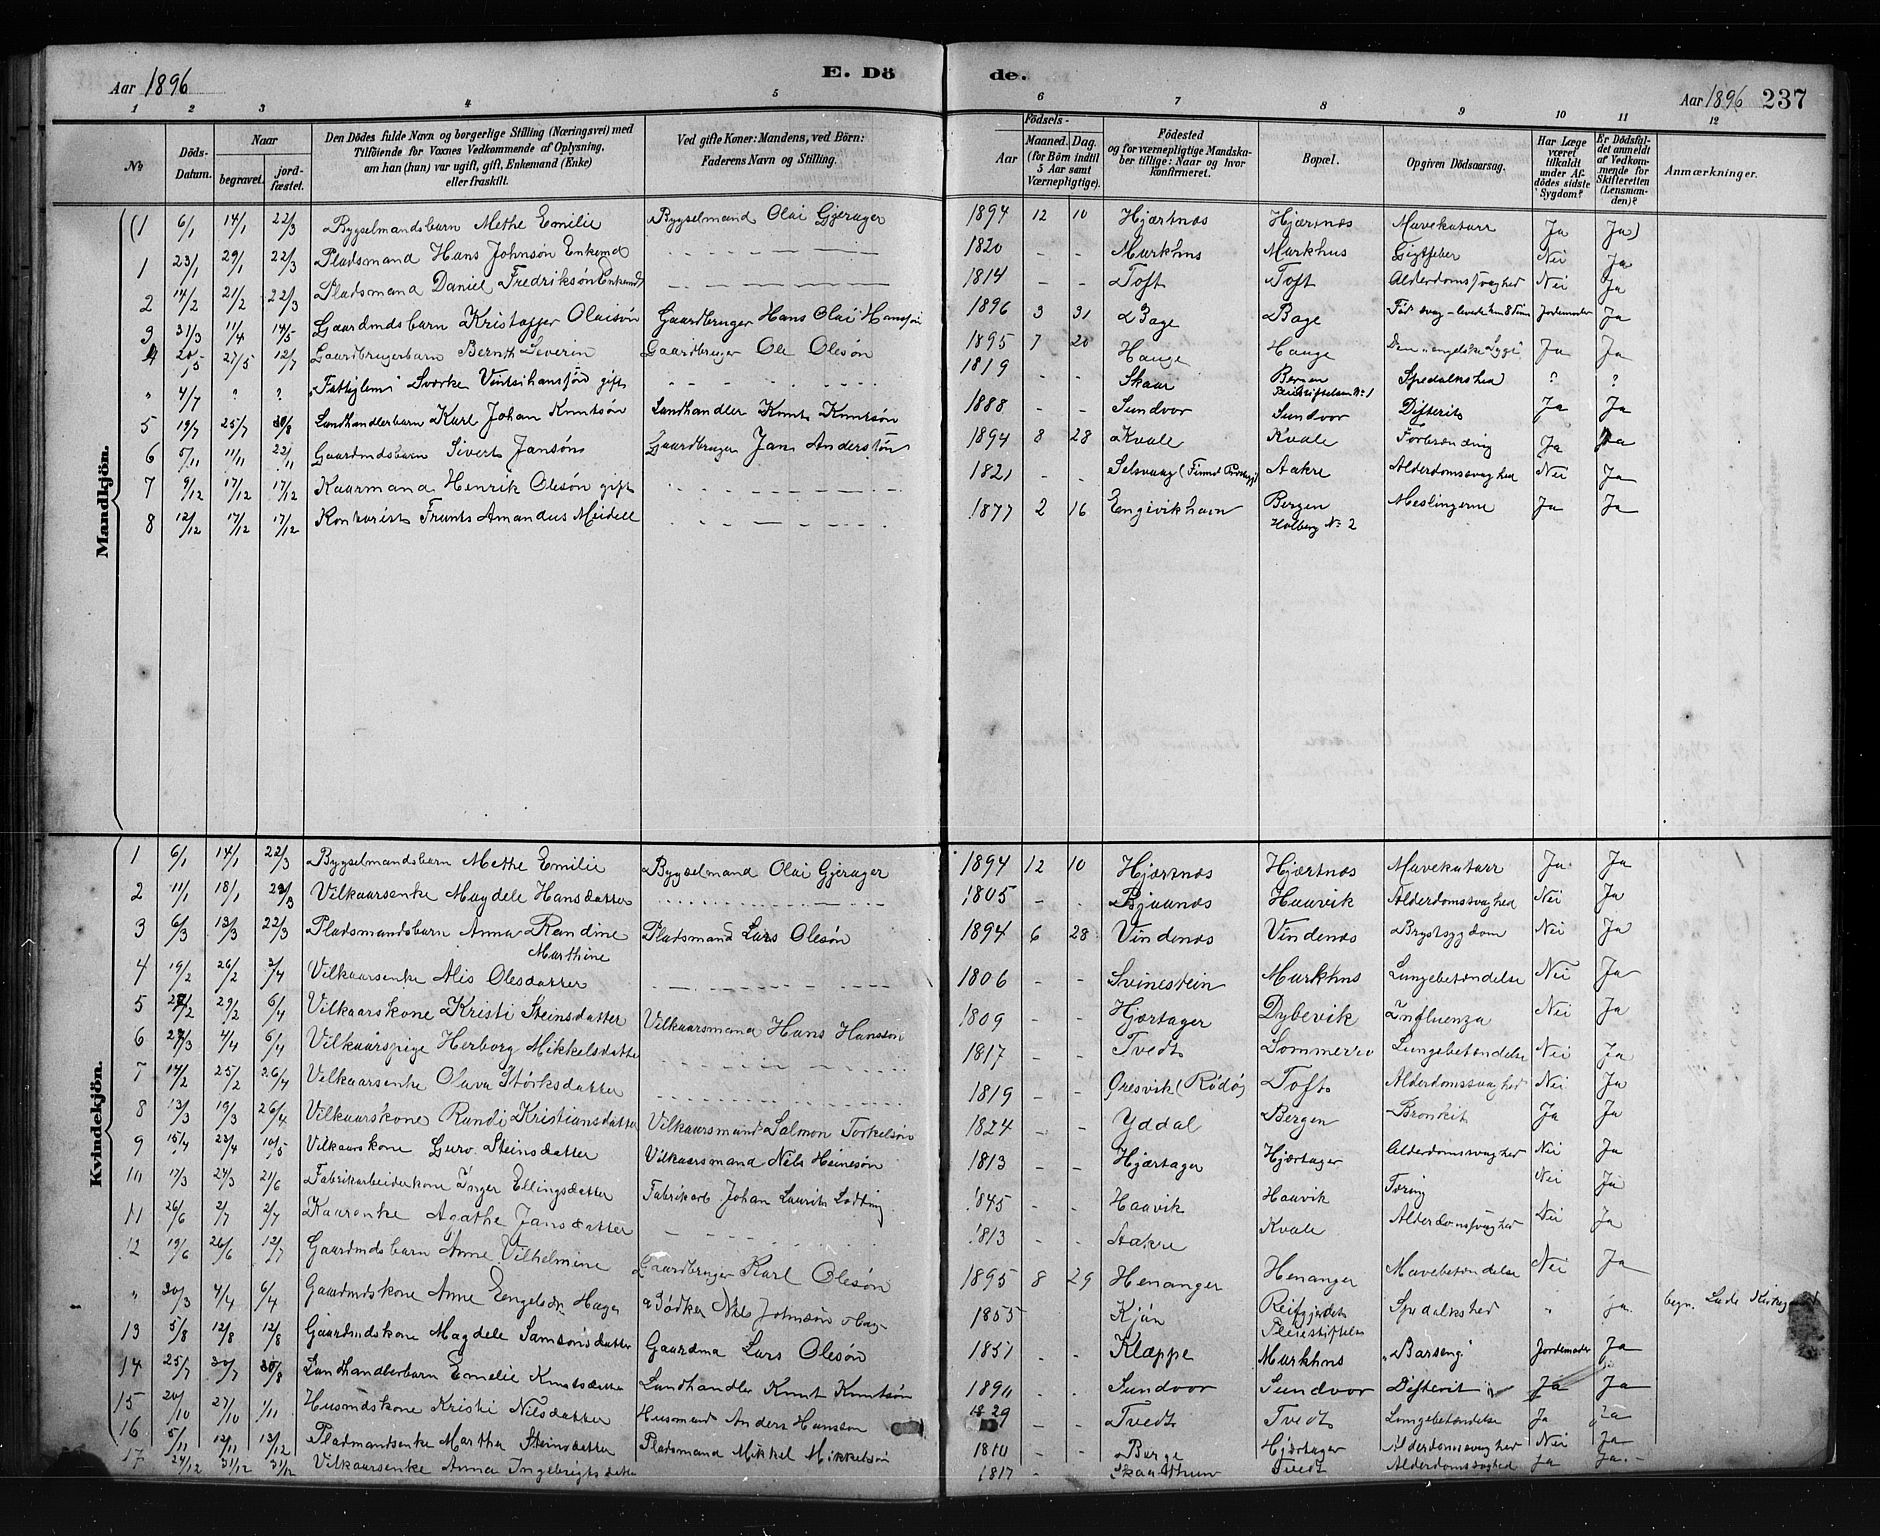 Aar 1896
E. Döde.
Aar 1896 237
1 2 3 4 5 6 7 8 9 10 11 12
No
Döds-Datum.
Naar
begravet.
jordfæstet.
Den Dödes fulde Navn og borgerlige Stilling (Næringsvei) med
Tilföiende for Voxnes Vedkommende af Oplysning,
om han (hun) var ugift, gift, Enkemand (Enke)
eller fraskilt.
Ved gifte Koner: Mandens, ved Börn:
Faderens Navn og Stilling.
Födsels-
Aar
Maaned. Dag.
(for Börn indtil
5 Aar samt
Værnepligtige).
Födested
og for værnepligtige Mandskaber tillige: Naar og hvor
konfirmeret.
Bopæl.
Opgiven Dödsaarsag.
Har Læge været tilkaldt under Afdödes sidste Sygdom?
Er Dödsfaldet anmeldt af Vedkommende for Skifteretten (Lensmanden)?
Anmærkninger.
Mandkjön.
(1 6/1 14/1 22/3 Bygselmandsbarn Methe Emilie Bygselmand Olai Gjerager 1894 12 10 Hjærtnæs Hjærtnæs Mavekatarr Ja Ja)
1 23/1 29/1 22/3 Pladsmand Hans Johnsön Enkemd 1820 - - Markhus Markhus Gigtfeber Nei Ja
2 14/2 21/2 22/3 Pladsmand Daniel Fredriksön Enkemd 1814 - - Toft Toft Alderdomssvaghed Nei Ja
3 31/3 11/4 14/5 Gaardmdsbarn Kristoffer Olaisön Gaardbruger Hans Olai Hansön 1896 3 31 Bage Bage Född svag - levede kun 8 Jordemoder Ja
4 20/5 27/5 12/7 Gaardbrugerbarn Bernth Severin Gaardbruger Ole Olesön 1895 7 20 Hauge Hauge Den "engelske Syge" Ja Ja
" 4/7 ? ? "Fattiglem" Sverke gift 1819 - - Skaar Bergen Pleiestiftelsen No 1 Spedalskhed ? ?
5 19/7 25/7 30/8 Landhandlerbarn Karl Johan Knutsön Landhandler Knut Knutsön 1888 - - Sundvor Sundvor Difterit Ja Ja
6 5/11 11/11 22/11 Gaardmdsbarn Sivert Jansön Gaardbruger Jan Anderssön 1894 8 28 Kvale Kvale Forbrænding Ja Ja
7 9/12 17/12 17/12 Kaarmand Henrik Olesön gift 1821 - - Selsvaag Aakre Alderdomssvaghed Nei Ja
8 12/12 17/12 17/12 Kontorist Frants Amandus Meidell 1877 2 16 Engivikhavn Bergen Holberg No 2 Meslingerne Ja Ja
Kvindekjön.
1 6/1 14/1 22/3 Bygselmandsbarn Methe Emilie Bygselmand Olai Gjerager 1894 12 10 Hjærtnæs Hjærtnæs Mavekatarr Ja Ja
2 11/1 18/1 22/3 Vilkaarsenke Magdele Hansdatter 1805 - - Bjaanæs Haavik Alderdomssvaghed Nei Ja
3 6/3 13/3 22/3 Pladsmandsbarn Anna Randine Marthine Pladsmand Lars Olesön 1894 6 28 Vindenæs Vindenæs Brystsygdom Nei Ja
4 19/2 26/2 3/4 Vilkaarsenke Alis Olesdatter 1806 - - Svinestein Markhus Lungebetændelse Nei Ja
5 22/2 29/2 6/4 Vilkaarskone Kristi Steinsdatter Vilkaarsmand Hans Hansson 1809 - - Hjærtager Dybevik Influenza Nei Ja
6 27/3 4/4 6/4 Vilkaarspige Herborg Mikkelsdatter 1817 - - Tvedt Sommerro Lungebetændelse Nei Ja
7 14/2 25/2 26/4 Vilkaarsenke Olava Störksdatter 1819 - - Oresvik (Rödö) Toft Alderdomssvaghed Nei Ja
8 13/3 19/3 26/4 Vilkaarskone Randi Kristiansdatter Vilkaarsmand Salmon Torkelsön 1824 - - Yddal Bergen Bronkit Ja Ja
9 15/4 23/4 10/5 Vilkaarskone Guro Steinsdatter Vilkaarsmand Nils Heinesön 1813 - - Hjærtager Hjærtager Alderdomssvaghed Nei Ja
10 17/3 24/3 21/6 Fabrikarbeiderkone Inger Ellingsdatter Fabrikarb Johan Laurits 1845 - - Haavik Haavik Tæring Nei Ja
11 26/6 2/7 2/7 Kaarenke Agathe Jansdatter 1813 - - Aakre Kvale Alderdomssvaghed Nei Ja
12 19/6 26/6 12/7 Gaardmdsbarn Anne Vilhelmine Gaardbruger Karl Olesön 1895 8 29 Henanger Henanger Mavebetændelse Nei Ja
" 20/3 4/4 6/4 Gaardmdskone Anne Engelsdr. Hage Bödker Nils Johnsön Hage 1855 Kjön Reitgjerdet Pleiestiftelse Spedalskhed " Ja begr.
13 5/8 12/8 12/8 Gaardmdskone Magdele Samsonsdatter Gaardma Lars Olesön 1851 - - Klæppe Markhus "Barseng" Jordemoder Ja
14 25/7 30/7 30/8 Landhandlerbarn Emelie Knutsdatter Landhandler Knut Knutsön 1890 - - Sundvor Sundvor Difterit Ja Ja
15 20/10 27/10 1/11 Husmdskone Kristi Nilsdatter Husmand Anders Hansson 1829 - - Tvedt Tvedt Lungebetændelse Ja Ja
16 5/11 12/11 13/12 Pladmandsenke Martha Steinsdatter Pladsmand Mikkel Mikkelsön 1810 - - Berge Hjærtager Alderdomssvaghed Nei Ja
17 24/12 31/12 31/12 Vilkaarsenke Anna Ingebrigtsdatter 1817 - Skaalthun Tvedt Alderdomssvaghed Ja Ja